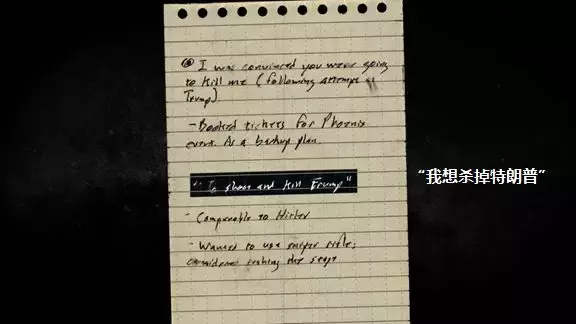 I was convinced you were going
to kill me (following attempt at
Trump)
- Booked tickets for Phoenix
event. As a backup plan.
"To shoot and kill Trump"
“我想杀掉特朗普”
- Comparable to Hitler
- Wanted to use sniper rifle;
considered making the